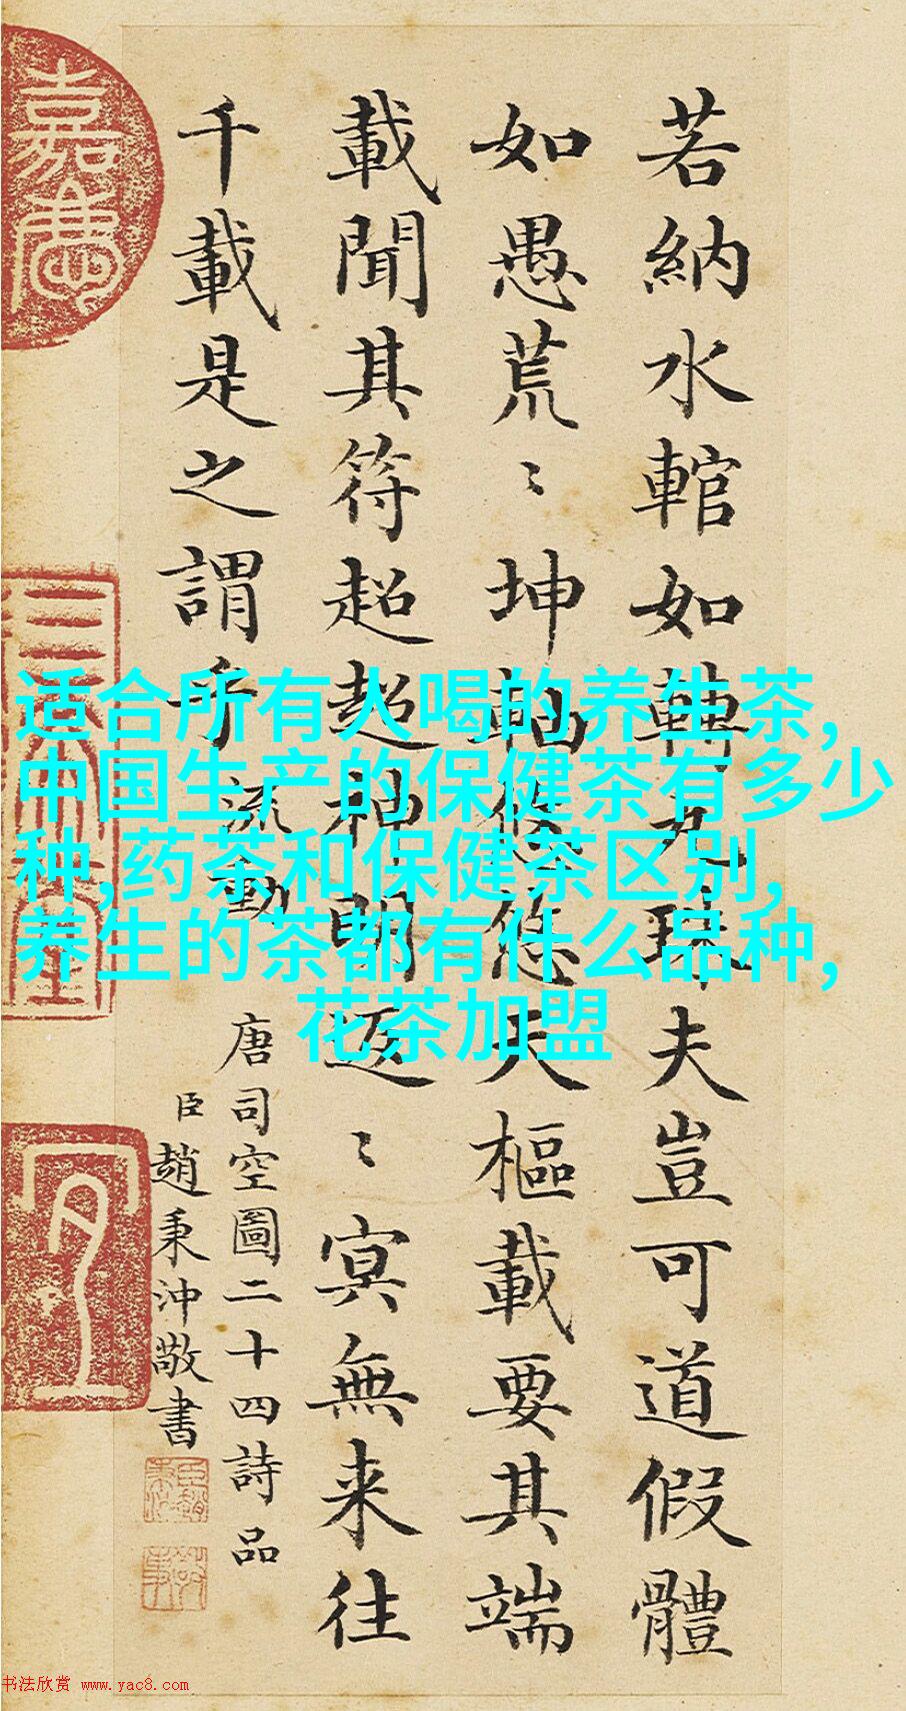 若納水輨如轉丸珠夫豈可道假體
如愚荒〻坤軸悠悠天樞載要其端
載聞其符超超神明返〻冥無来往
千載是之謂乎 流動
唐司空圖二十四詩品
臣趙秉沖敬書
嘉慶
适合所有人喝的养生茶,
中国生产的保健茶有多少
种,药茶和保健茶区别,
养生的茶都有什么品种,
花茶加盟
书法欣赏 www.yac8.com